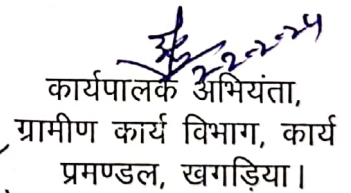 22-2-24
कार्यपालक अभियंता,
ग्रामीण कार्य विभाग, कार्य
प्रमण्डल, खगड़िया।